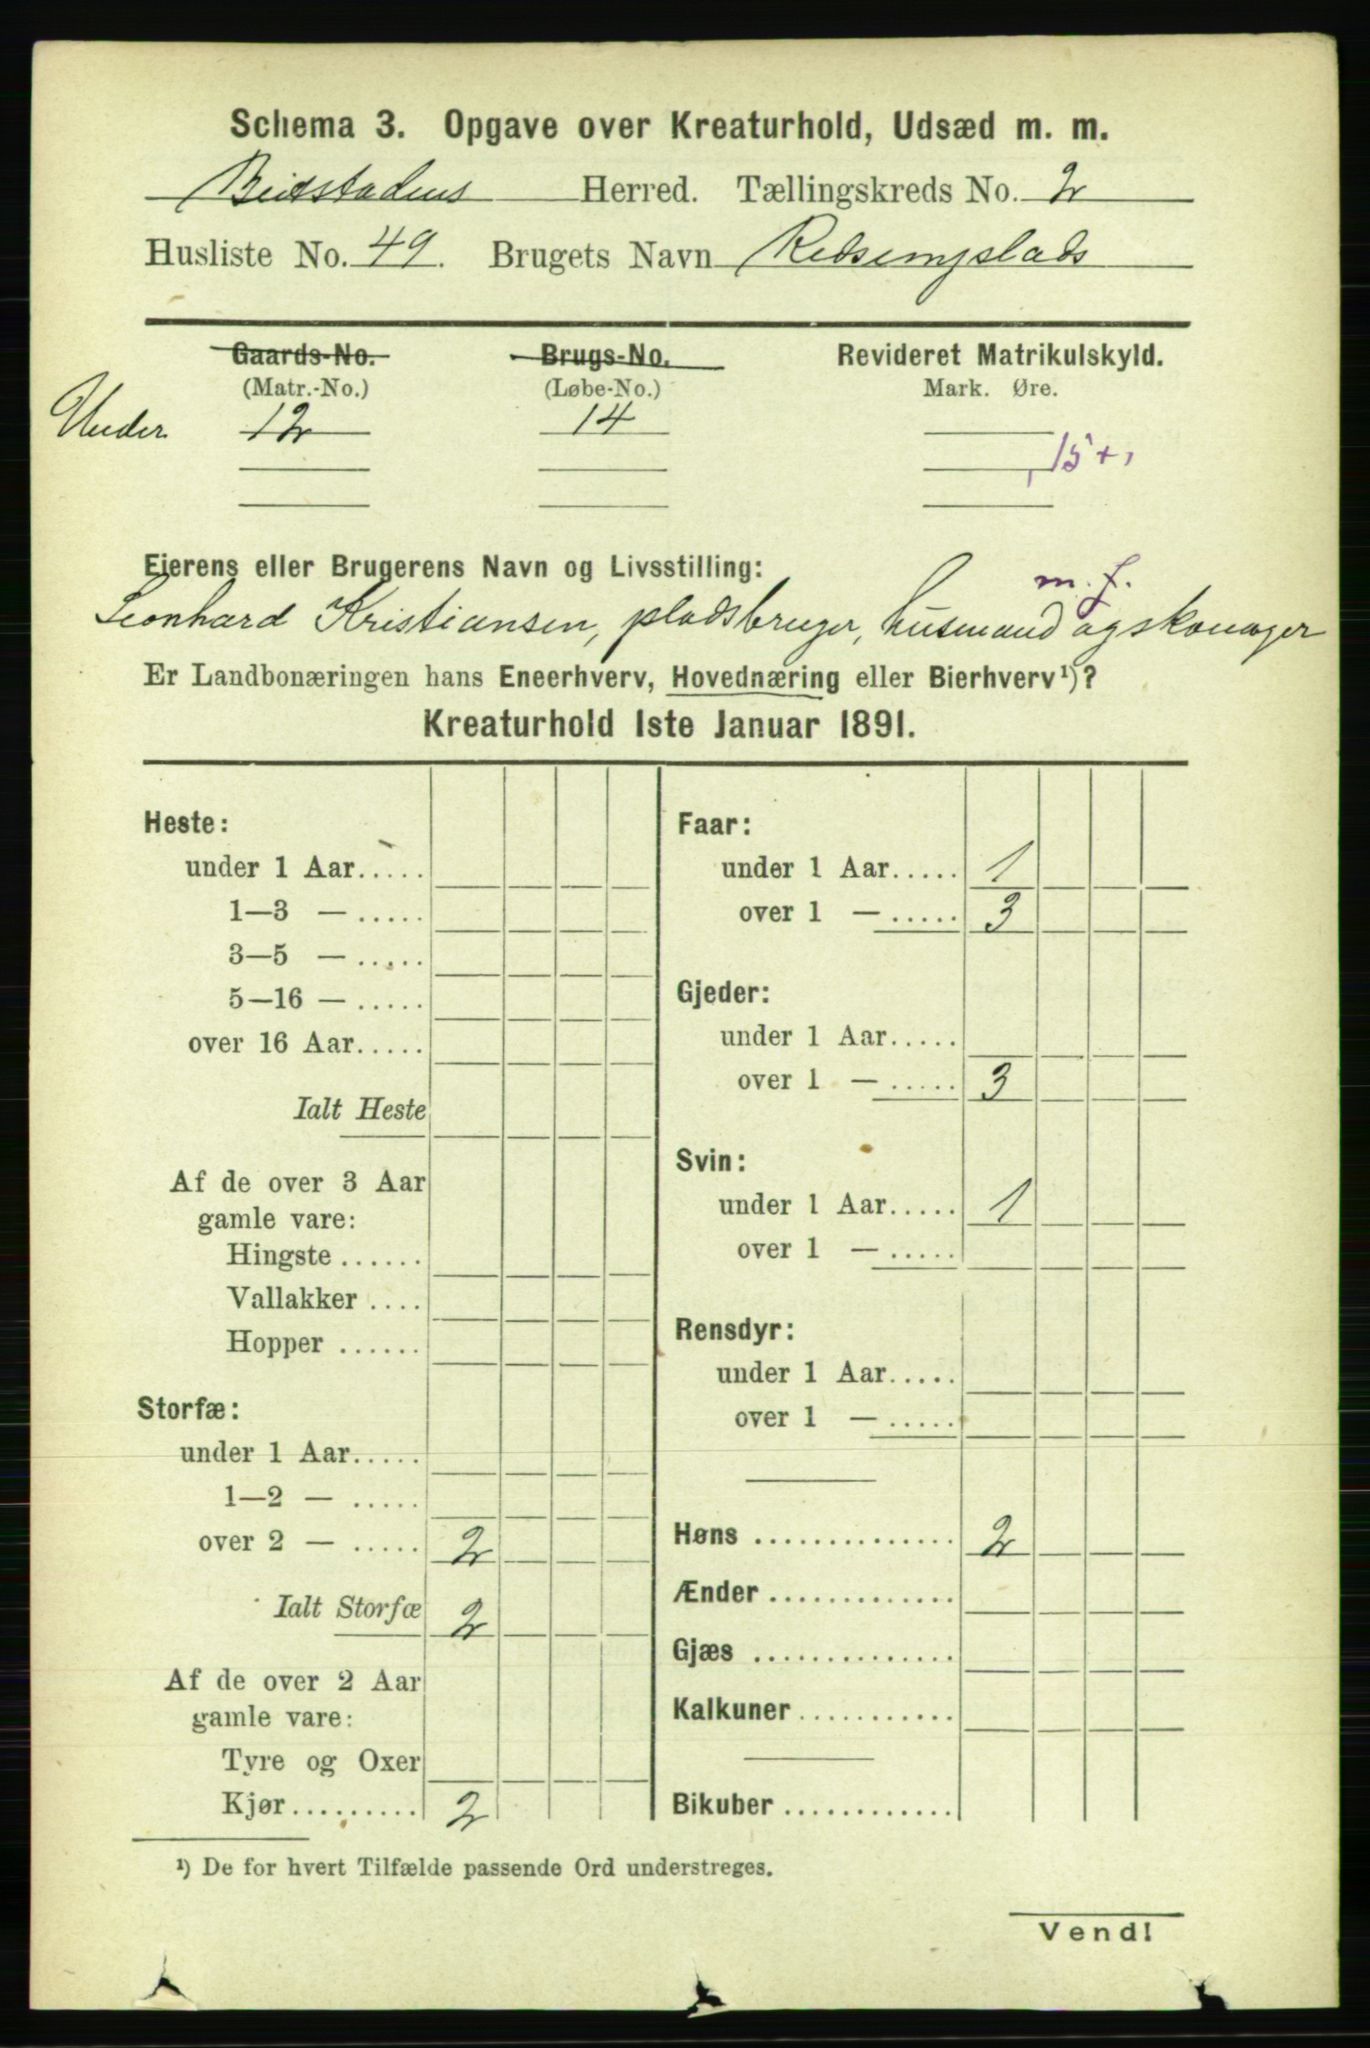 Schema 3. Opgave over Kreaturhold, Udsæd m. m.
Beitstadens Herred. Tællingskreds No. 2
Husliste No. 49. Brugets Navn
Gaards-No. Brugs-No. Revideret Matrikulskyld.
(Matr.-No.) (Løbe-No.) Mark. Øre.
Under 12 14
,15+,
Eierens eller Brugerens Navn og Livsstilling:
m. f.
Leonhard Kristiansen, pladsbruger, husmand og skomager
Er Landbonæringen hans Eneerhverv, Hovednæring eller Bierhverv¹)?
Kreaturhold 1ste Januar 1891.
Heste:
under 1 Aar.....
1—3 — .....
3—5 — .....
5—16 — .....
over 16 Aar.....
Ialt Heste
Af de over 3 Aar
gamle vare:
Hingste ......
Vallakker ....
Hopper ......
Storfæ:
under 1 Aar.....
1—2 — .....
over 2 — ..... 2
Ialt Storfæ 2
Af de over 2 Aar
gamle vare:
Tyre og Oxer
Kjør.......... 2
Faar:
under 1 Aar..... 1
over 1 — ..... 3
Gjeder:
under 1 Aar.....
over 1 — ..... 3
Svin:
under 1 Aar..... 1
over 1 — .....
Rensdyr:
under 1 Aar.....
over 1 — .....
Høns .............. 2
Ænder .............
Gjæs ..............
Kalkuner ...........
Bikuber ............
¹) De for hvert Tilfælde passende Ord understreges.
Vend!